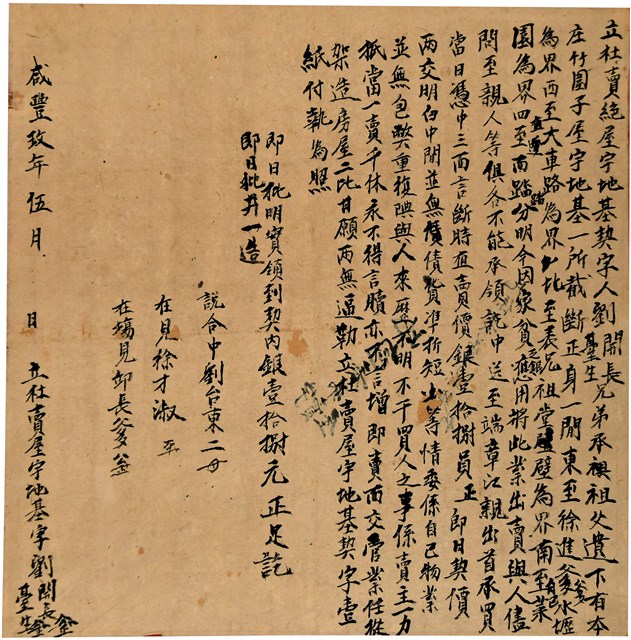 立杜賣絕屋宇地基契字人劉開長臺生兄弟承祖父遺下有本
庄竹園子屋宇地基一所截斷正身一間東至徐進爹水壢
為界西至大車路為界北至表兄祖堂壁為界南至自己菜
園為界四至面踏分明今因家貧乏銀應用將此業出賣與人儘
問至親人等俱各不能承領託中送至端章江親出首承買
當日憑中三面言斷時值賣價銀壹拾捌員正即日契價
兩交明白中間並無債貨準折短少等情委係自己物業
並無包弊重復與人來歷不明不干買人之事係賣主一力
抵當一賣千休永不得言贖亦不言增即賣而交管業任從
架造房屋二比甘願兩無逼勒立杜賣屋宇地基契字壹
紙付執為照
即日批明實領到契內銀壹拾捌元正足訖
即日批并一造
說合中劉台東
在見徐才淑
在場見邱長爹
咸豐玖年伍月 日 立杜賣屋宇地基字劉開長臺生